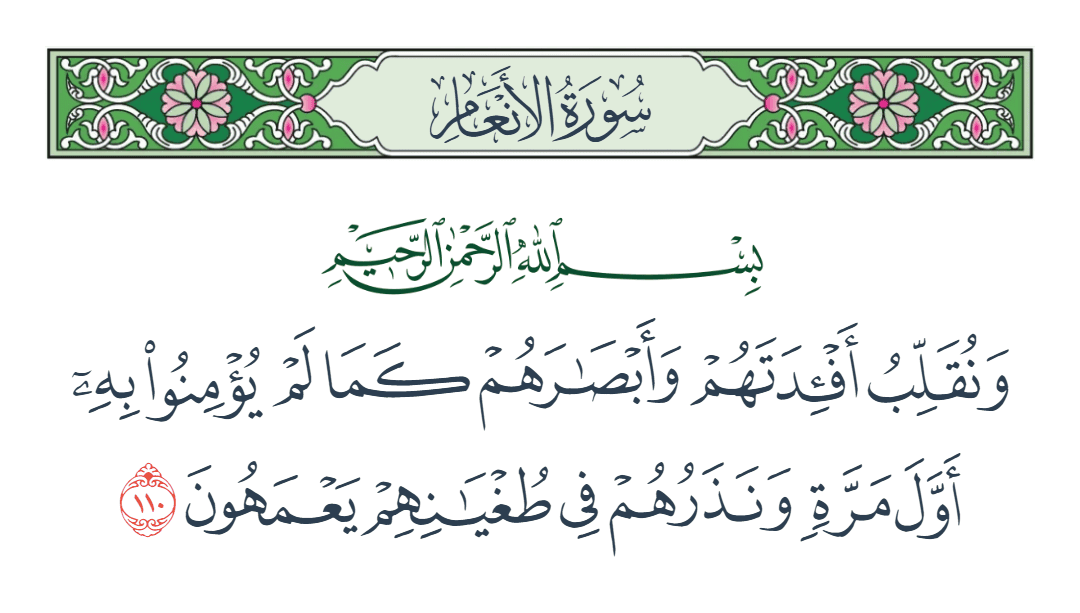 سُورَةُ الأَنْعَامِ
بِسْمِ ٱللَّهِ ٱلرَّحْمَٰنِ ٱلرَّحِيمِ
وَنُقَلِّبُ أَفْـِٔدَتَهُمْ وَأَبْصَٰرَهُمْ كَمَا لَمْ يُؤْمِنُوا۟ بِهِۦٓ
أَوَّلَ مَرَّةٍ وَنَذَرُهُمْ فِى طُغْيَٰنِهِمْ يَعْمَهُونَ ١١٠